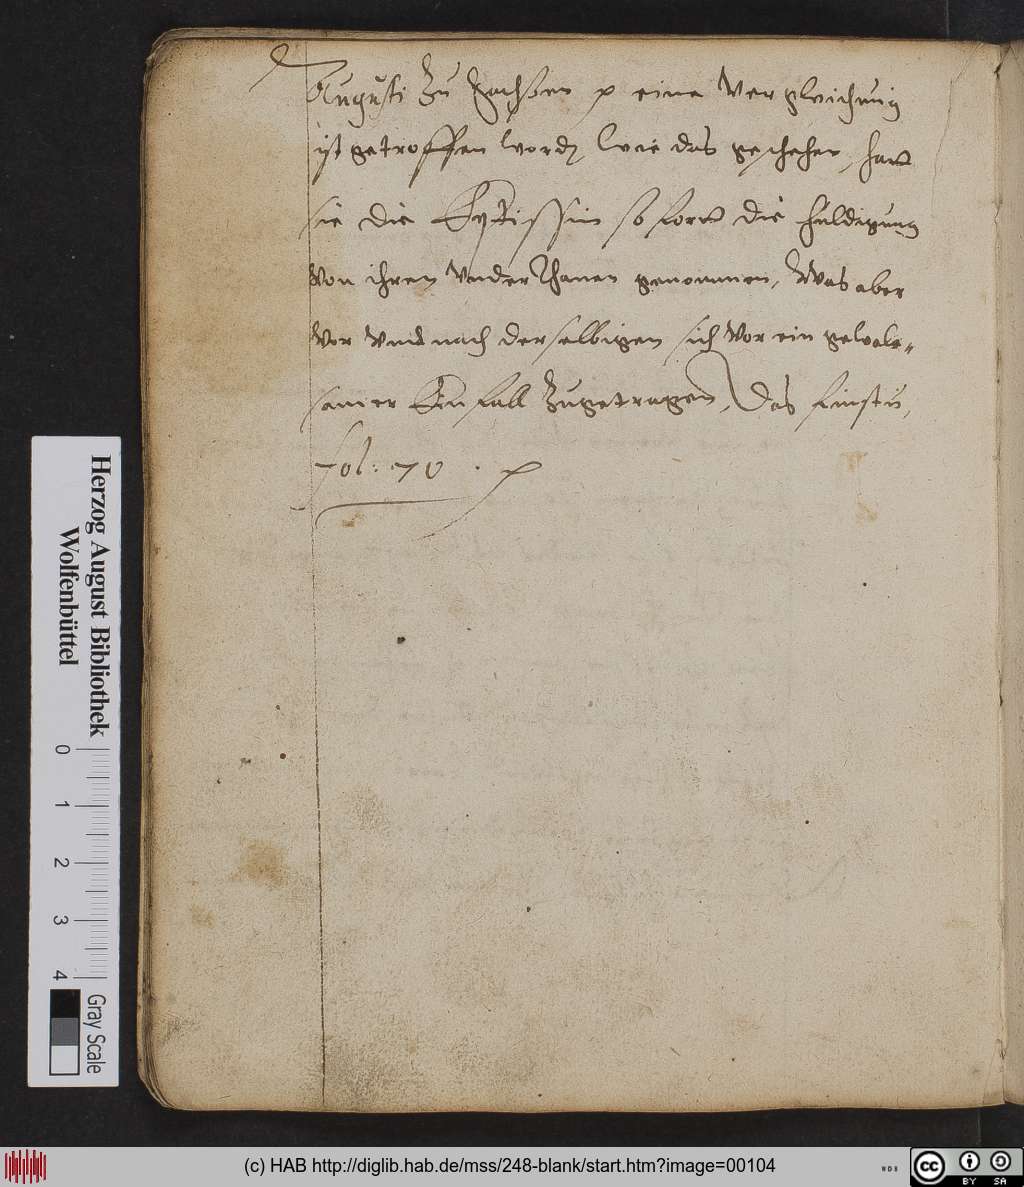 Augusti Zu Sachßen ꝛc eine Vergleichung
ist getroffen word, Wie das geschehen, hatt
sie die Eptissin so fortt die huldigung
Von ihren Underthanen genommen, Was aber
Vor Und nach derselbigen sich Vor ein gewalt-
samer Einfall Zugetragen, Das finstu,
fol: 70. ꝛc
Herzog August Bibliothek
Wolfenbüttel
0 1 2 3 4
Gray Scale
(c) HAB http://diglib.hab.de/mss/248-blank/start.htm?image=00104
WDB
cc BY SA